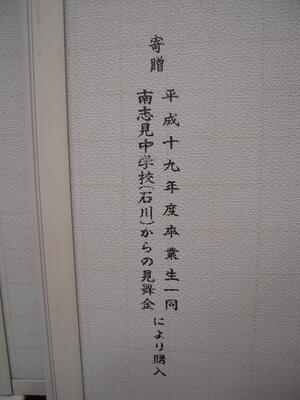 寄贈
平成十九年度卒業生一同
南志見中学校(石川)からの見舞金
により購入